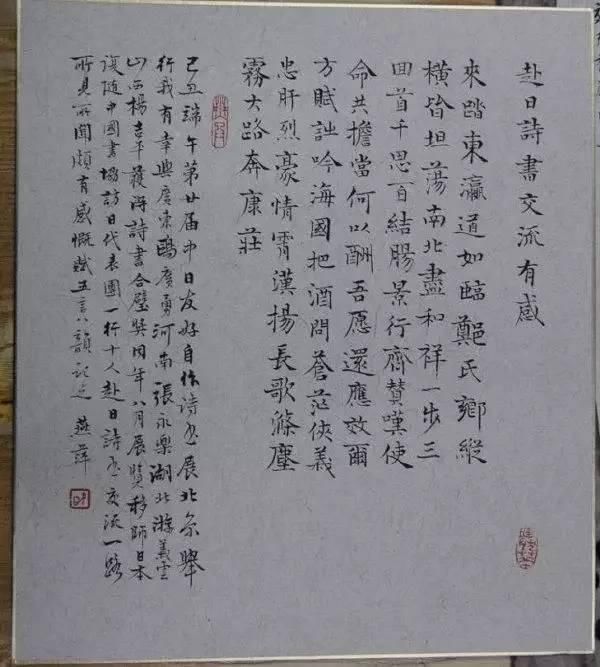 赴日詩書交流有感
來踏東瀛道如臨鄭氏鄉縱
橫皆坦蕩南北盡和祥一步三
回首千思百結腸景行齊贊嘆使
命共擔當何以酬吾愿還應效爾
方賦詩吟海國把酒問蒼茫俠義
忠肝烈豪情霄漢揚長歌滌塵
霧大路奔康莊
己丑端午第廿届中日友好自作诗书展北京舉
行我有幸與廣東鷗廣勇河南張永樂湖北游美雲
山西楊吉平獲得詩書合璧獎同年八月展覽移師日本
復隨中國書協訪日代表團一行十人赴日詩书交流一路
所見所聞頗有感慨賦五言八韻記之 燕萍